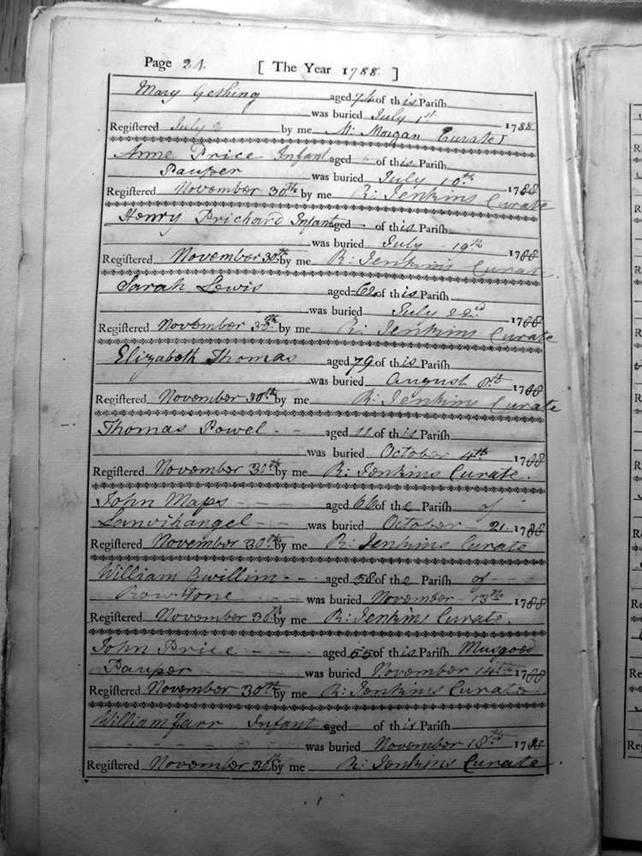 Page 21. [ The Year 1788 ]
Mary Gething aged 74 of this Parish
was buried July 1st 1788
Registered July 2 by me M: Morgan Curate
Anne Price Infant aged - of this Parish
Pauper was buried July 10th 1788
Registered November 30th by me R: Jenkins Curate
Henry Prichard Infant aged - of this Parish
was buried July 19th 1788
Registered November 30th by me R: Jenkins Curate
Sarah Lewis aged 62 of this Parish
was buried July 22d 1788
Registered November 30th by me R: Jenkins Curate
Elizabeth Thomas aged 79 of this Parish
was buried August 8th 1788
Registered November 30th by me R: Jenkins Curate
Thomas Powel - - aged 11 of this Parish
was buried October 4th 1788
Registered November 30th by me R: Jenkins Curate.
John Maps - - - aged 66 of the Parish of
Lanvihangel - - - was buried October - 21 - 1788
Registered November 30th by me R: Jenkins Curate
William Gwillim - - aged 58 of the Parish of
Rowstone was buried November 13th 1788
Registered November 30th by me R: Jenkins Curate
John Price - - - aged 55 of this Parish
Pauper was buried November 14th 1788
Registered November 30th by me R: Jenkins Curate
William Farr Infant aged of this Parish
was buried November 18th 1788
Registered November 30th by me R: Jenkins Curate